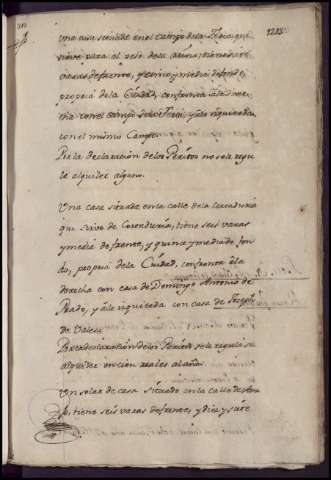 1213
Una casa situada en el campo de la Feria, que
sirve para el peso de la Arina; tiene diez
varas de frente, y cinco, y media de fondo,
propria de la Ciudad, confronta a la dere-
cha con el campo de la Feria, y a la izquierda
con el mismo Campo.
Por la declaración de los Peritos no se le regu-
la alquiler alguno.
Una casa situada en la calle de la Contaduria
que sirve de Contaduria, tiene seis varas
y media de frente, y quince y media de fon-
do, propria de la Ciudad, confronta a la
derecha con casa de Domingo Antonio de
Prado, y a la izquierda con casa de Joseph
de Valesa
Por la declaración de los Peritos se le regula su
alquiler en cien reales al año.
Un solar de casa situado en la calle de
tiene seis varas de frente, y diez y siete